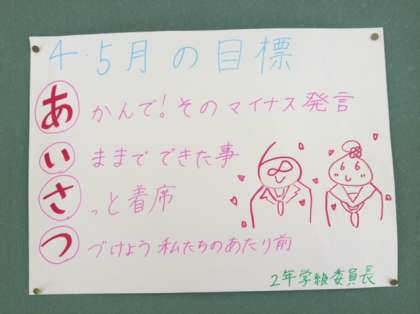 4・5月の目標
あかんで!そのマイナス発言
いままでできた事
さっと着席
つづけよう私たちのあたり前
2年学級委員長